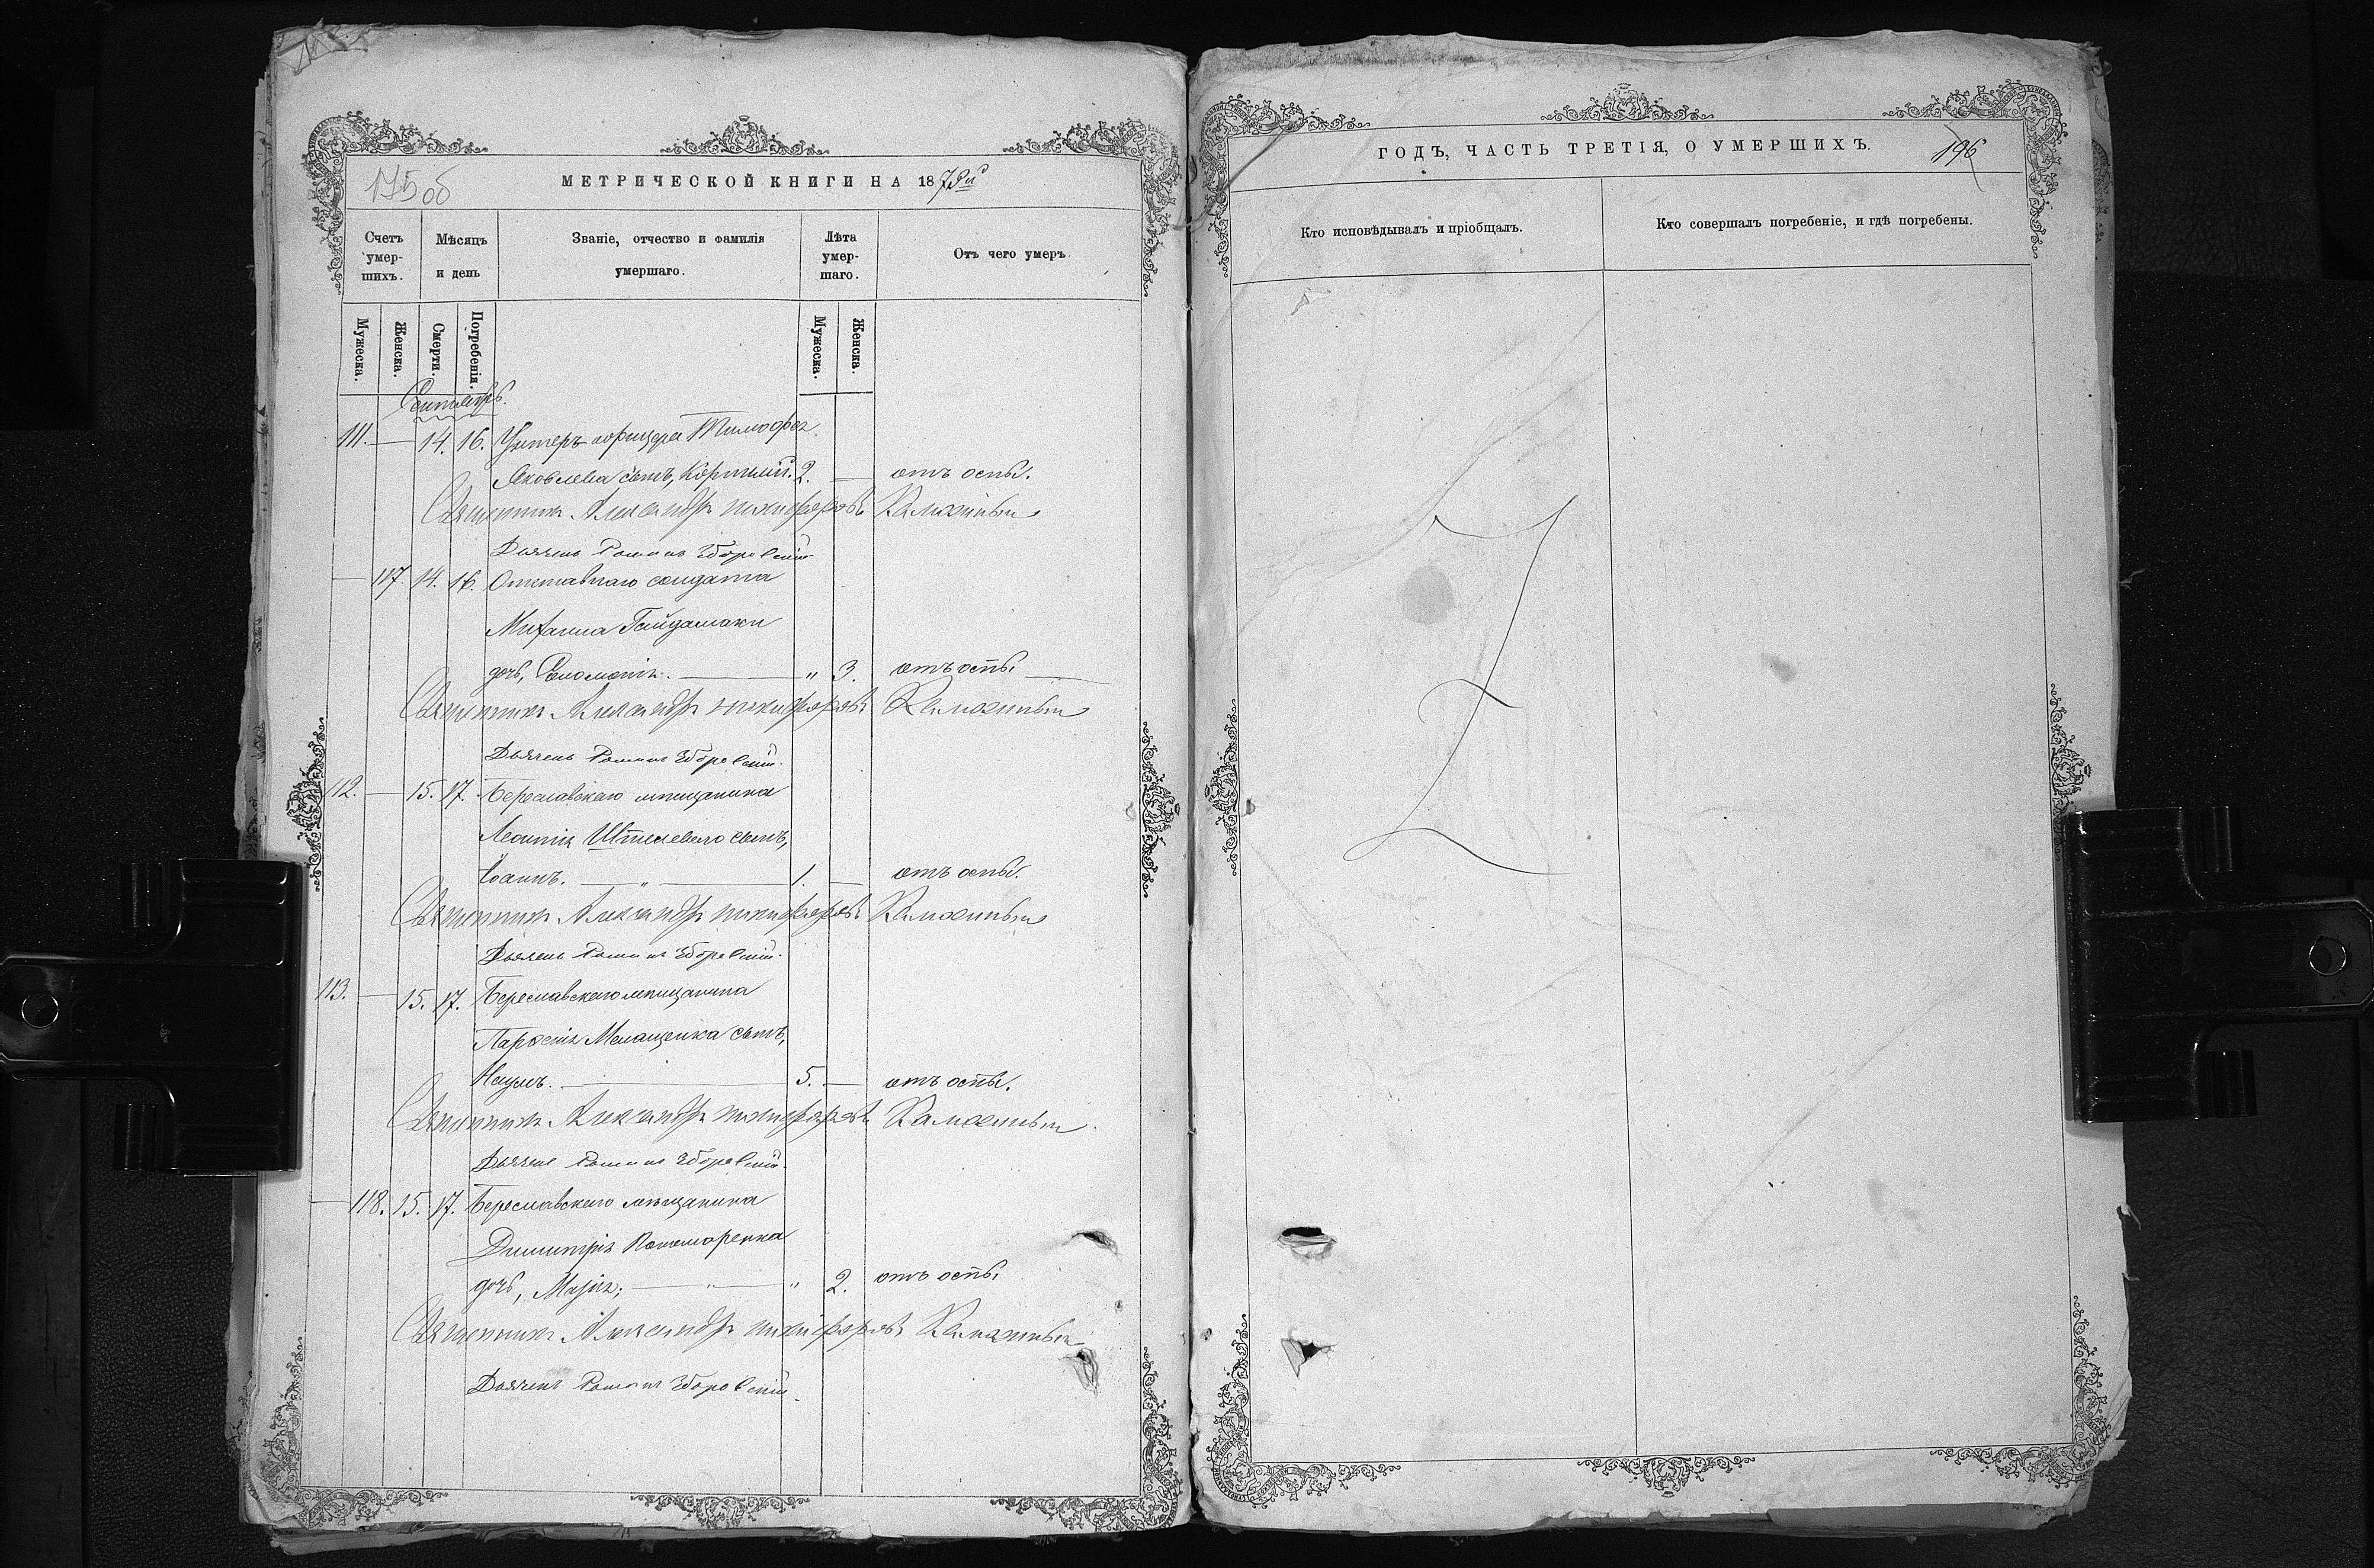 175 об
МЕТРИЧЕСКОЙ КНИГИ НА 1873й
Счетъ умер-шихъ.
Мѣсяцъ и день
Званіе, отчество и фамилія умершаго.
Лѣта умер-шаго.
Отъ чего умеръ
Мужеска.
Женска.
Смерти.
Погребенія.
Мужеска.
Женска.
Сентябрь.
111. — 14. 16. Унтеръ-офицера Тимофея
Яковлева сынъ, 2. — отъ оспы.
Священникъ Александръ Никифоровъ
Дьячекъ Романъ Зборовскій
— 117. 14. 16. Отставнаго солдата
Михаила Гайдамаки
дочь, Соломонія. — " 3. отъ оспы
Священникъ Александръ Никифоровъ
Дьячекъ Романъ Зборовскій.
112. — 15. 17. Береславскаго мѣщанина
Леонтія сынъ,
Іоаннъ. — " — 1. — отъ оспы.
Священникъ Александръ Никифоровъ
Дьячекъ Романъ Зборовскій.
113. — 15. 17. Береславскаго мѣщанина
Парфенія Мелащенка сынъ,
Наумъ. — 5. — отъ оспы.
Священникъ Александръ Никифоровъ
Дьячекъ Романъ Зборовскій.
— 118. 15. 17. Береславскаго мѣщанина
Димитрія Пономаренка
дочь, Марія; — " — " 2. отъ оспы
Священникъ Александръ Никифоровъ
Дьячекъ Романъ Зборовскій.
ГОДЪ, ЧАСТЬ ТРЕТІЯ, О УМЕРШИХЪ.
196
Кто исповѣдывалъ и пріобщалъ.
Кто совершалъ погребеніе, и гдѣ погребены.